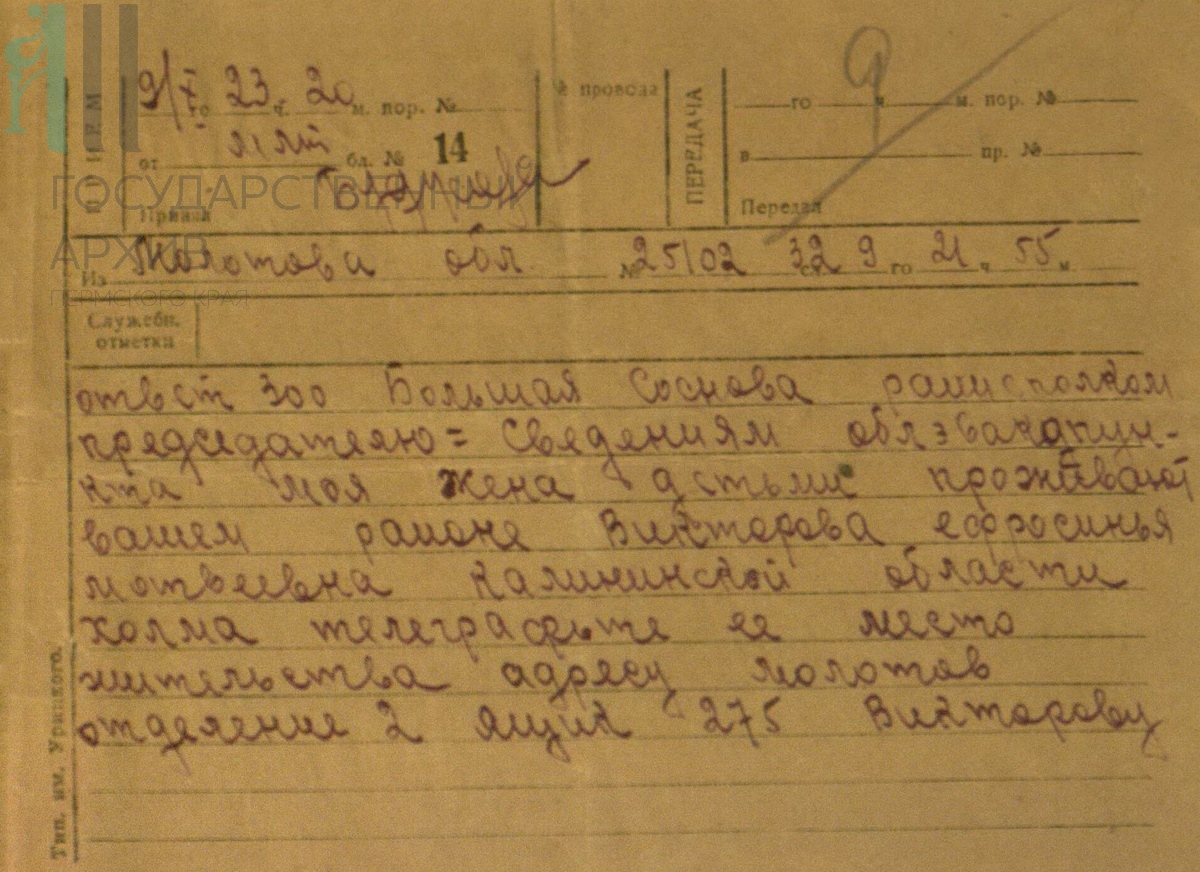 ПРИЕМ
9/X го 23 ч. 20 м. пор. №
№ провода
ПЕРЕДАЧА
го ч. м. пор. №
9
от млт бл. № 14
в пр. №
Принял
Передал
ГОСУДАРСТВЕННЫЙ
АРХИВ
ПЕРМСКОГО КРАЯ
Из Молотова обл № 25102 32 сл. 9 го 21 ч. 55 м.
Служебн.
отметки
ответ 300 Большая Соснова райисполком
председателю = Сведениям облэвакопун-
кта моя жена детьми проживают
вашем районе Викторова ефросинья
матвеевна калининской области
холма телеграфьте ее место
жительства адресу молотов
отделение 2 ящик 275 Викторову
Тип. им. Урицкого.